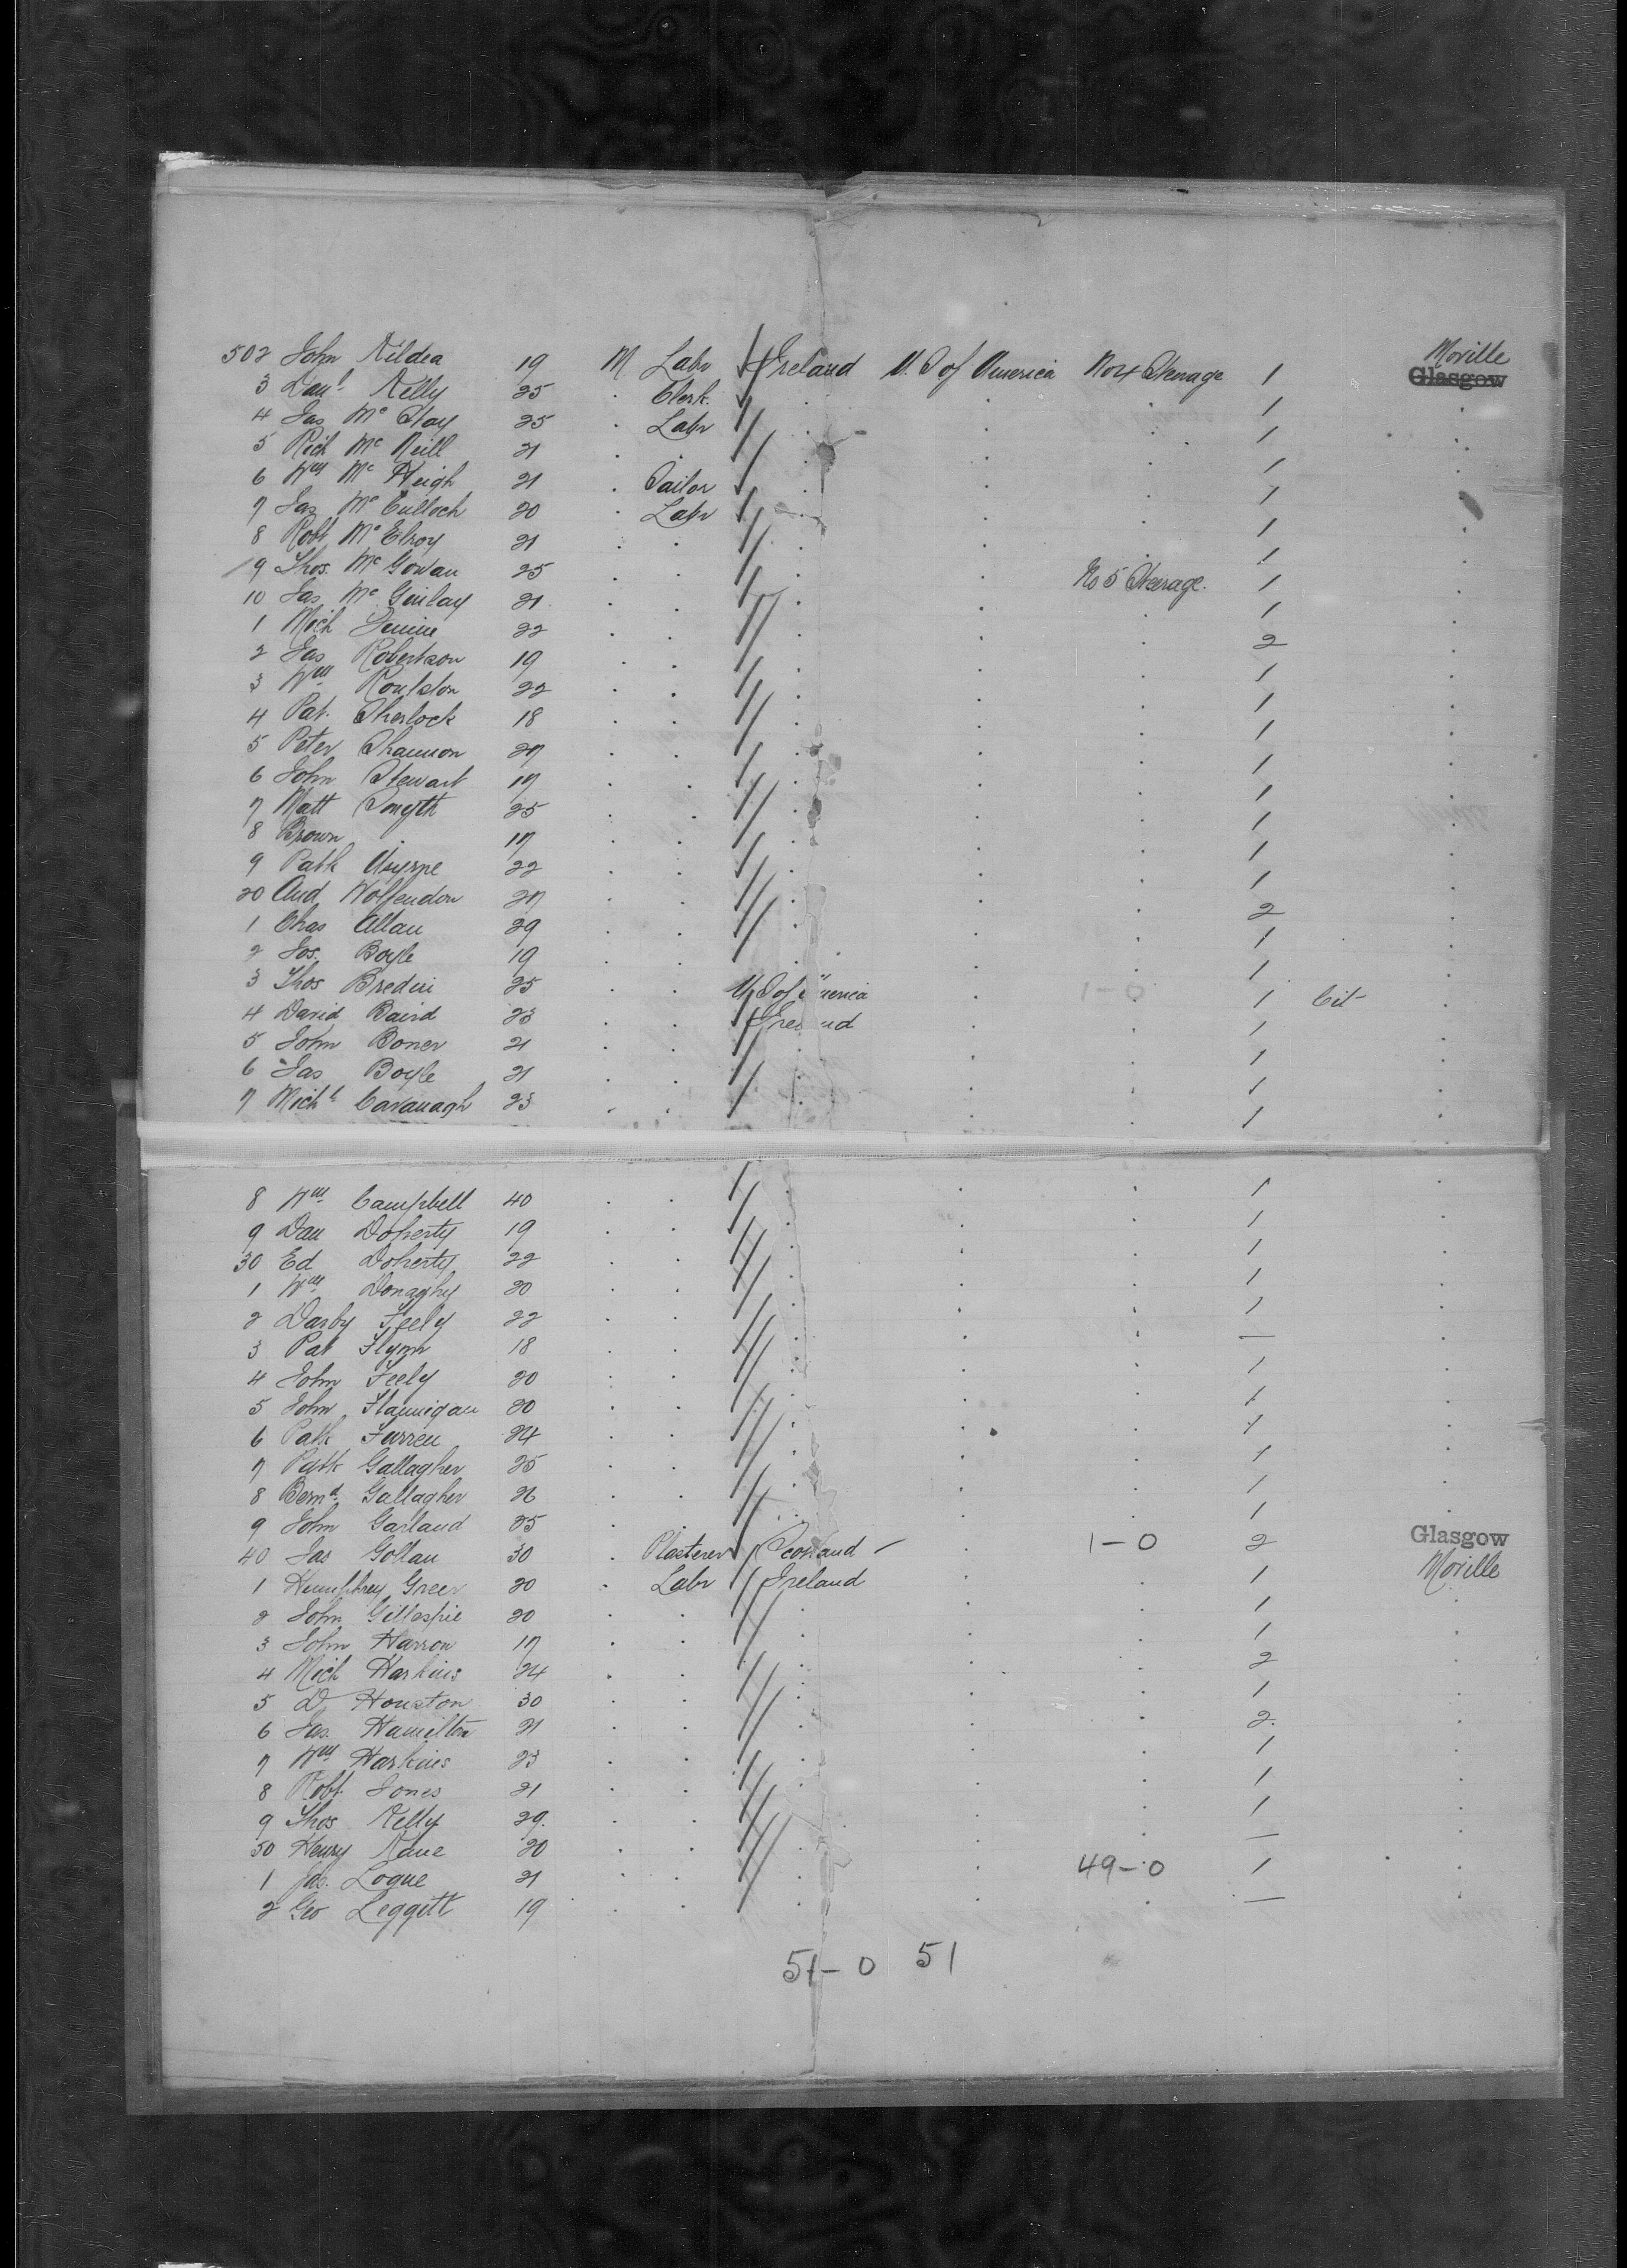 502 John Kildea 19 M Labr Ireland U. S of America No 4 Steerage 1 Moville Glasgow
3 Danl Kelly 25 . Clerk . . . 1 .
4 Jas Mc Stay 25 . Labr . . . 1 .
5 Rich Mc Neill 21 . . . . . 1 .
6 Wm Mc Heigh 21 . Tailor . . . 1 .
7 Jas Mc Culloch 20 . Labr . . . 1 .
8 Robt Mc Elroy 21 . . . . . 1 .
9 Thos. Mc Gowan 25 . . . . No 5 Steerage. 1 .
10 Jas Mc Ginlay 21 . . . . . 1 .
1 Mich 22 . . . . . 2 .
2 Jas Robertson 19 . . . . . 1 .
3 Wm Roulston 22 . . . . . 1 .
4 Pat. Sherlock 18 . . . . . 1 .
5 Peter Shannon 27 . . . . . 1 .
6 John Stewart 17 . . . . . 1 .
7 Matt Smyth 25 . . . . . 1 .
8 Brown . 17 . . . . . 1 .
9 Patk 22 . . . . . 1 .
20 And Wolfendon 27 . . . . . 2 .
1 Chas Allan 29 . . . . . 1 .
2 Jos. Boyle 19 . . . . . 1 .
3 Thos Bredin 25 . . U S of America . 1-0 1 Cit .
4 David Baird 23 . . Ireland . . 1 .
5 John Boner 21 . . . . . 1 .
6 Jas Boyle 21 . . . . . 1 .
7 Michl Cavanagh 23 . . . . . 1 .
8 Wm Campbell 40 . . . . . 1 .
9 Dan Doherty 19 . . . . . 1 .
30 Ed Doherty 22 . . . . . 1 .
1 Wm Donaghy 20 . . . . . 1 .
2 Darby Feely 22 . . . . . 1 .
3 Pat Flynn 18 . . . . . — .
4 John Feely 20 . . . . . 1 .
5 John Flannigan 20 . . . . . 1 .
6 Patk Farren 24 . . . . . 1 .
7 Patk Gallagher 25 . . . . . 1 .
8 Bernd Gallagher 26 . . . . . 1 .
9 John Garland 25 . . . . . 1 .
40 Jas Gollan 30 . Plasterer Scotland . 1-0 2 Glasgow
1 Humphrey Greer 20 . Labr Ireland . . 1 Moville
2 John Gillespie 20 . . . . . 1 .
3 John Harron 17 . . . . . 1 .
4 Mich Harkins 24 . . . . . 2 .
5 D. Houston 30 . . . . . 1 .
6 Jas. Hamilton 21 . . . . . 2. .
7 Wm Harkins 23 . . . . . 1 .
8 Robt. Jones 21 . . . . . 1 .
9 Thos Kelly 29. . . . . . 1 .
50 Henry Kane 20 . . . . . — .
1 Jas. Logue 21 . . . . 49-0 1 .
2 Geo Leggett 19 . . . . . — .
51-0 51